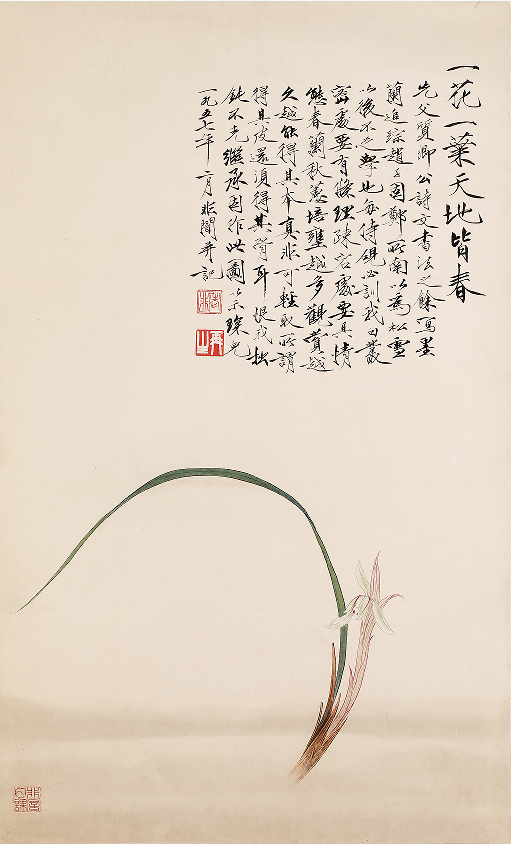 一花一葉天地皆春
先父質卿公詩文書法之餘寫墨
蘭追踪趙子固鄭所南以為松雪
以後不之學也每侍硯必訓我曰叢
密處要有條理疎宕處要具情
態春蘭秋蕙培壅越多觀賞越
久越能得其本真非可輕取所謂
得其皮還須得其骨耳恨我拙
鈍不克繼承因作此圖以示兒
一九五七年二月非闇并記